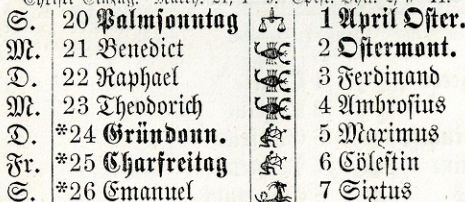 S. 20 Palmsonntag 1 April Oster.
M. 21 Benedict 2 Ostermont.
D. 22 Raphael 3 Ferdinand
M. 23 Theodorich 4 Ambrosius
D. *24 Gründonn. 5 Maximus
Fr. *25 Charfreitag 6 Cölestin
S. *26 Emanuel 7 Sixtus